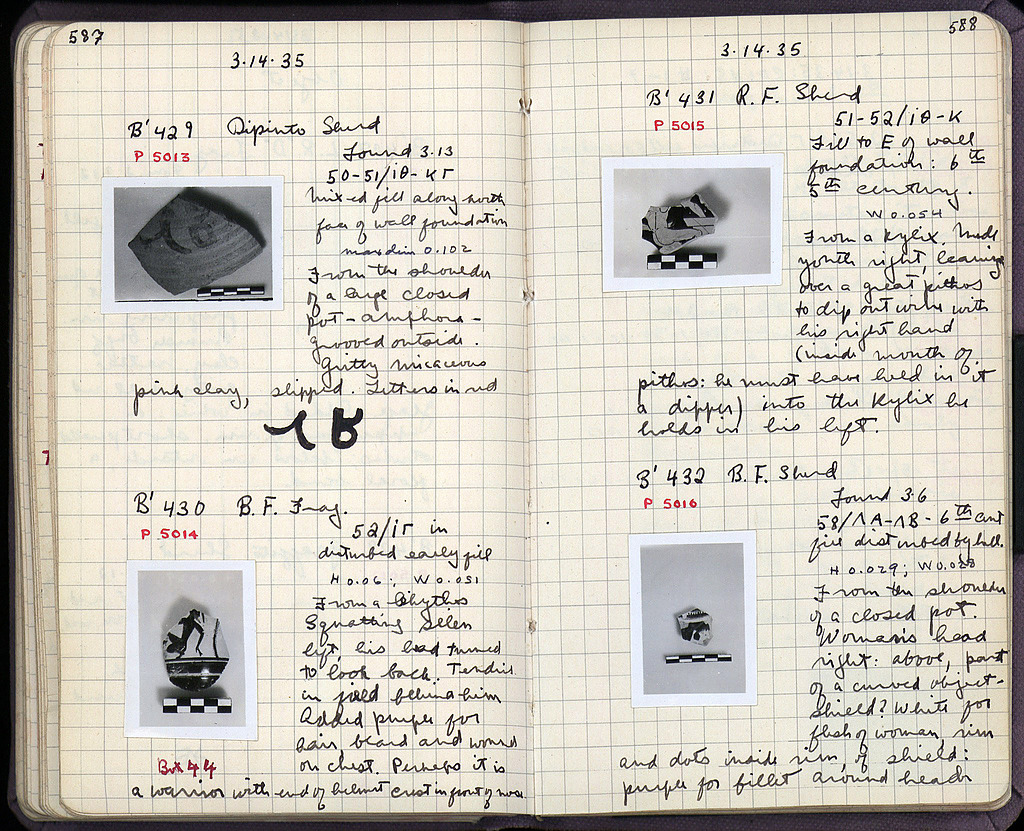 587
3·14·35
B' 429 Dipinto Sherd
P 5013
Found 3.13
50-51/ΙΘ-ΚΓ
Mixed fill along north
face of wall foundation
max dim 0.102
From the shoulder
of a large closed
pot - amphora -
grooved outside.
Gritty micaceous
pink clay, slipped. Letters in red
B' 430 B.F. Frag.
P 5014
52/ΙΓ in
disturbed early fill
H 0.06; W 0.051
From a lekythos
Squatting Silen
left, his head turned
to look back. Tendril
in field behind him
Added purple for
hair, beard and wound
on chest. Perhaps it is
Box 44
a warrior with end of helmet crest in front of
588
3·14·35
B' 431 R.F. Sherd
P 5015
51-52/ΙΘ-Κ
Fill to E of wall
foundation: 6th
5th century.
W 0.054
From a Kylix. Nude
youth right, leaning
over a great pithos
to dip out wine with
his right hand
(inside mouth of
pithos: he must have held in it
a dipper) into the Kylix he
holds in his left.
B' 432 B.F. Sherd
P 5016
Found 3.6
58/ΛΑ-ΛΒ - 6th cent
fill disturbed by
H 0.029; W 0.028
From the shoulder
of a closed pot.
Woman's head
right: above, part
of a curved object -
shield? White for
flesh of woman, rim
and dots inside rim, of shield:
purple for fillet around head